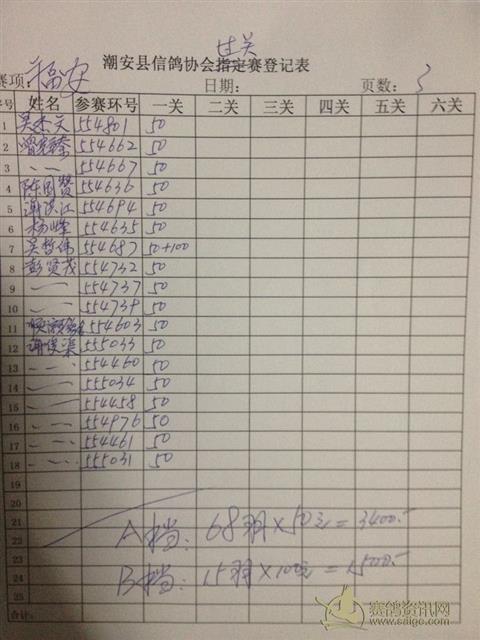 过关
潮安县信鸽协会指定赛登记表
赛项: 福安 日期: 页数: 3
序号 姓名 参赛环号 一关 二关 三关 四关 五关 六关
1 吴杰文 554801 50
2 554662 50
3 〃 554667 50
4 陈国赞 554636 50
5 谢洪江 554694 50
6 杨峰 554635 50
7 吴哲伟 554687 50+100
8 彭贤茂 554732 50
9 〃 554737 50
10 〃 554739 50
11 554603 50
12 谢俊渠 555033 50
13 〃 554460 50
14 〃 555034 50
15 〃 554458 50
16 〃 554976 50
17 〃 554461 50
18 〃 555031 50
19
20
21
22
23
24
25
合计:
A档: 68羽×50元=3400.-
B档: 15羽×100元=1500.-
赛鸽资讯网
www.saige.com